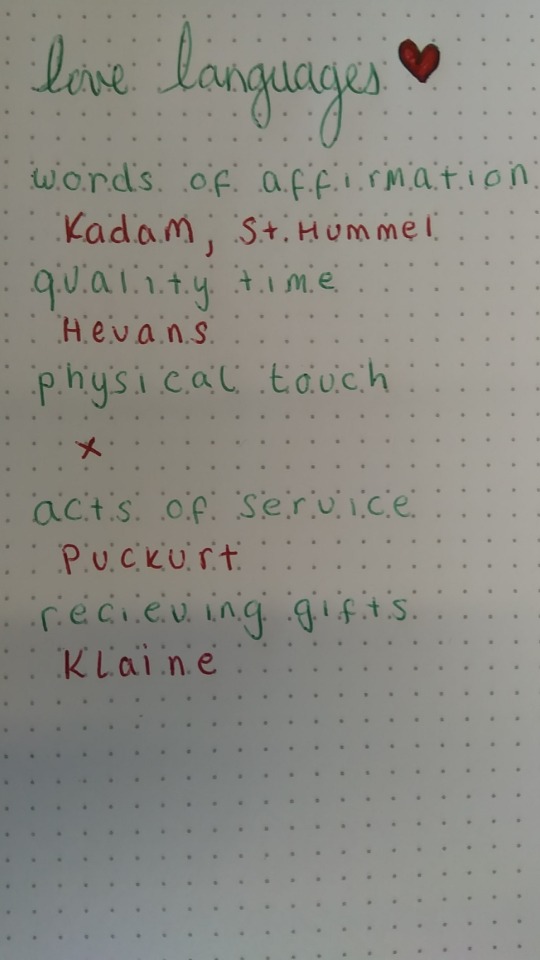 love languages
words of affirmation
Kadam, St. Hummel
quality time
Hevans
physical touch
x
acts of service
Puckurt
recieving gifts
Klaine